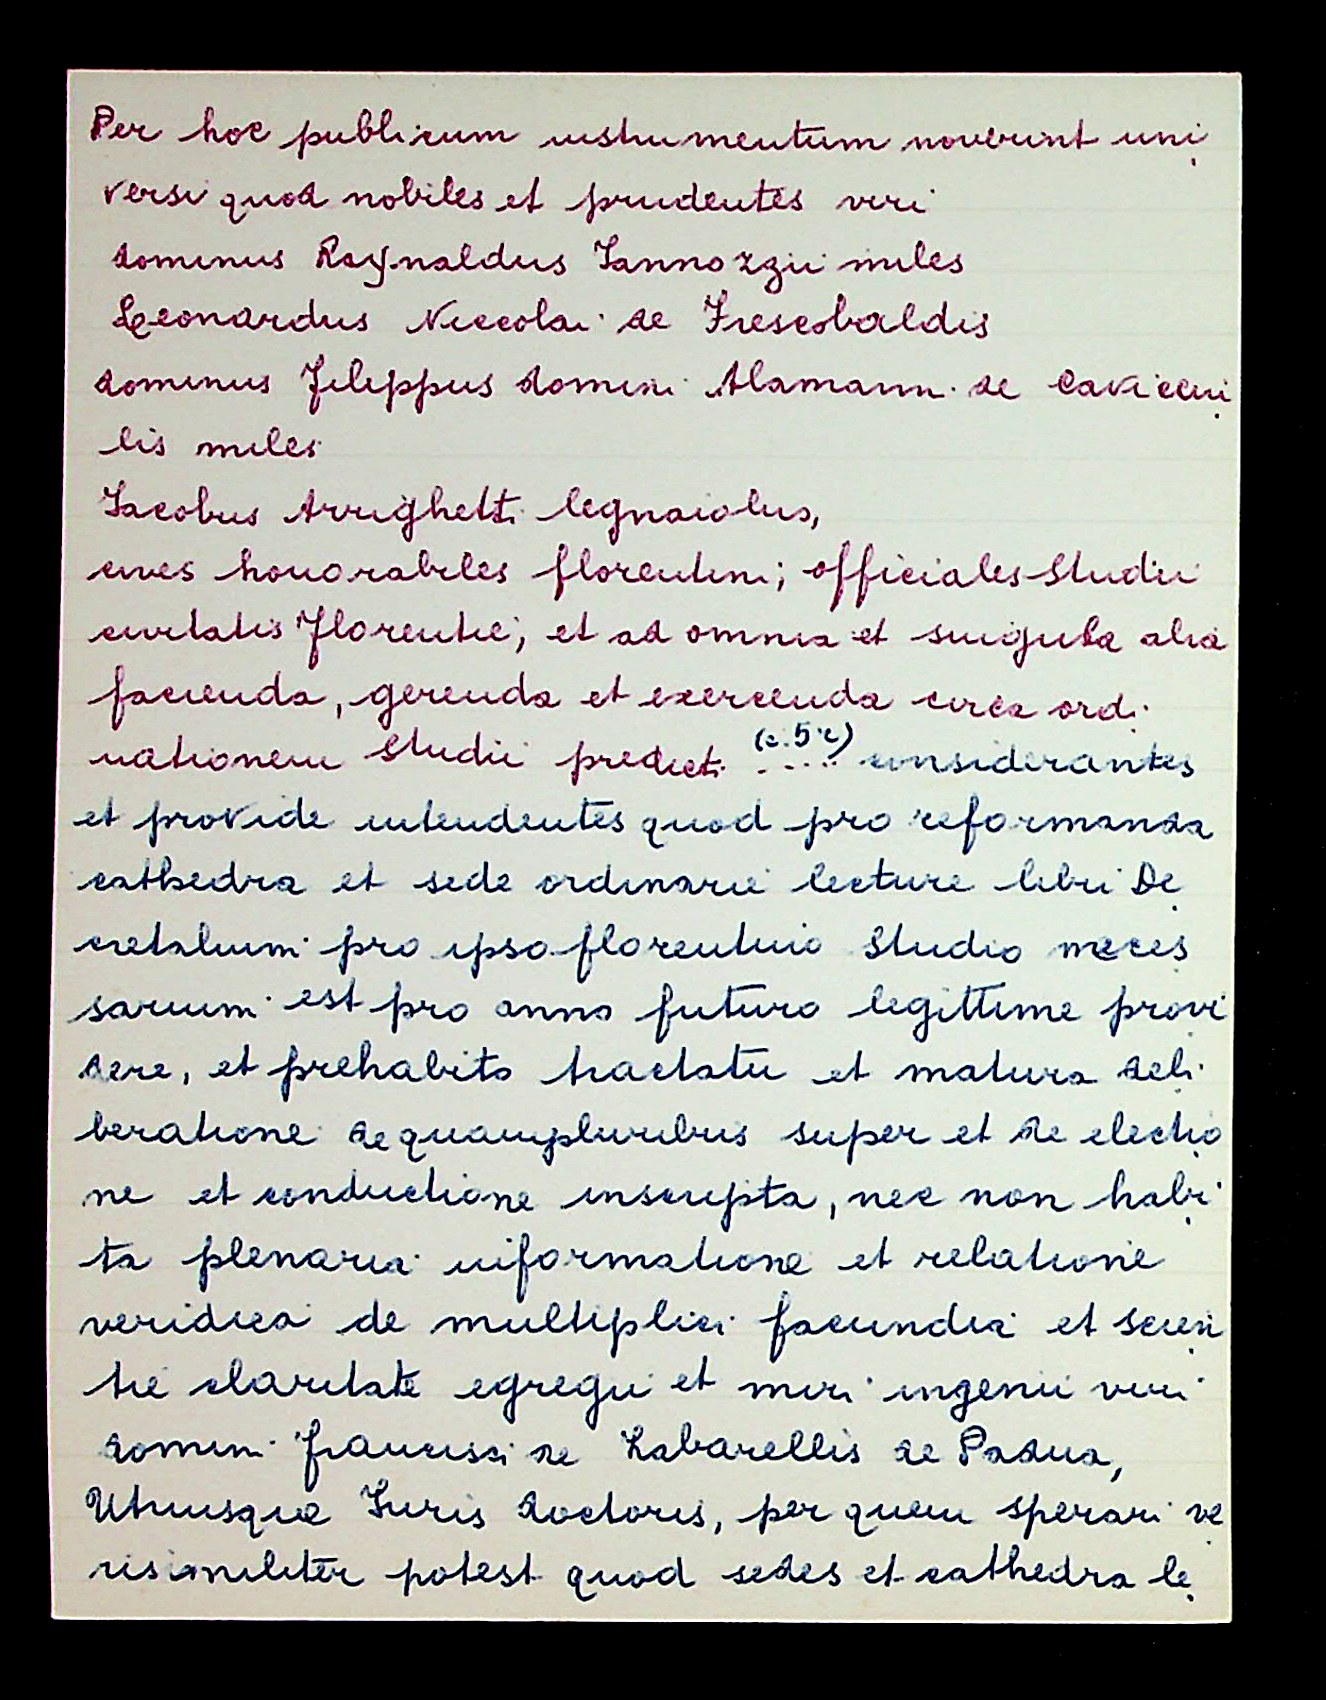 Per hoc publicum instrumentum noverint uni
versi quod nobiles et prudentes viri
dominus Raynaldus Iannozzii miles
Leonardus Niccolai de Frescobaldis
dominus Filippus domini Alamanni de Cavicciu
lis miles
Iacobus Arrighetti legnaiolus,
cives honorabiles florentini; officiales Studii
civitatis Florentie, et ad omnia et singula alia
facienda, gerenda et exercenda circa ordi
nationem Studii predicti (c. 5 r) .... considerantes
et provide intendentes quod pro reformanda
cathedra et sede ordinarie lecture libri De
cretalium pro ipso florentino Studio neces
sarium est pro anno futuro legittime provi
dere, et prehabito tractatu et matura deli
beratione de quampluribus super et de electio
ne et conductione inscripta, nec non habi
ta plenaria informatione et relatione
veridica de multiplici facundia et scien
tie claritate egregii et miri ingenii viri
domini Francisci de Zabarellis de Padua,
Utriusque Iuris doctoris, per quem sperari ve
risimiliter potest quod sedes et cathedra le